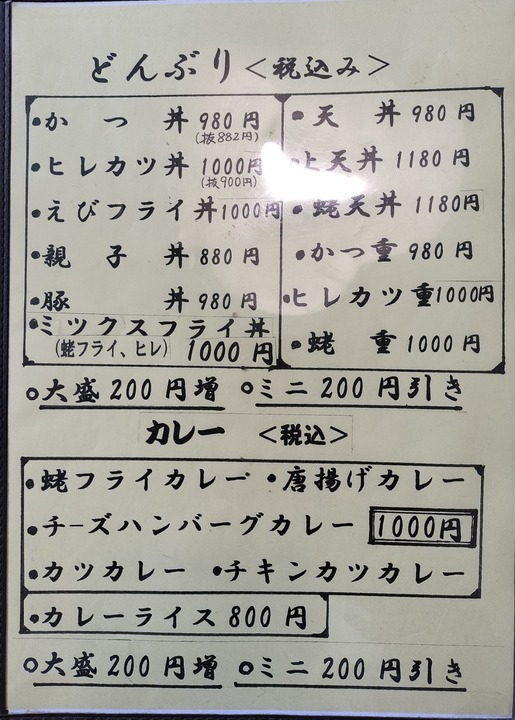 どんぶり<税込み>
・かつ丼 980円
(抜882円)
・ヒレカツ丼 1000円
(抜900円)
・えびフライ丼 1000円
・親子丼 880円
・豚丼 980円
・ミックスフライ丼
(蛯フライ、ヒレ) 1000円
・天丼 980円
・上天丼 1180円
・蛯天丼 1180円
・かつ重 980円
・ヒレカツ重 1000円
・蛯重 1000円
○大盛200円増 ○ミニ200円引き
カレー <税込>
・蛯フライカレー ・唐揚げカレー
・チーズハンバーグカレー 1000円
・カツカレー ・チキンカツカレー
・カレーライス 800円
○大盛200円増 ○ミニ200円引き